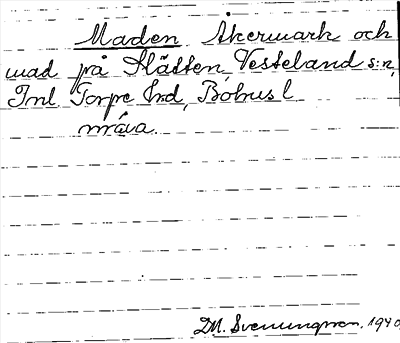 Maden Åkermark och
mad på Slätten, Vesteland s:n,
Inl Torpe hd, Bohus l
mráa.
D.M. Svenungsson. 1940